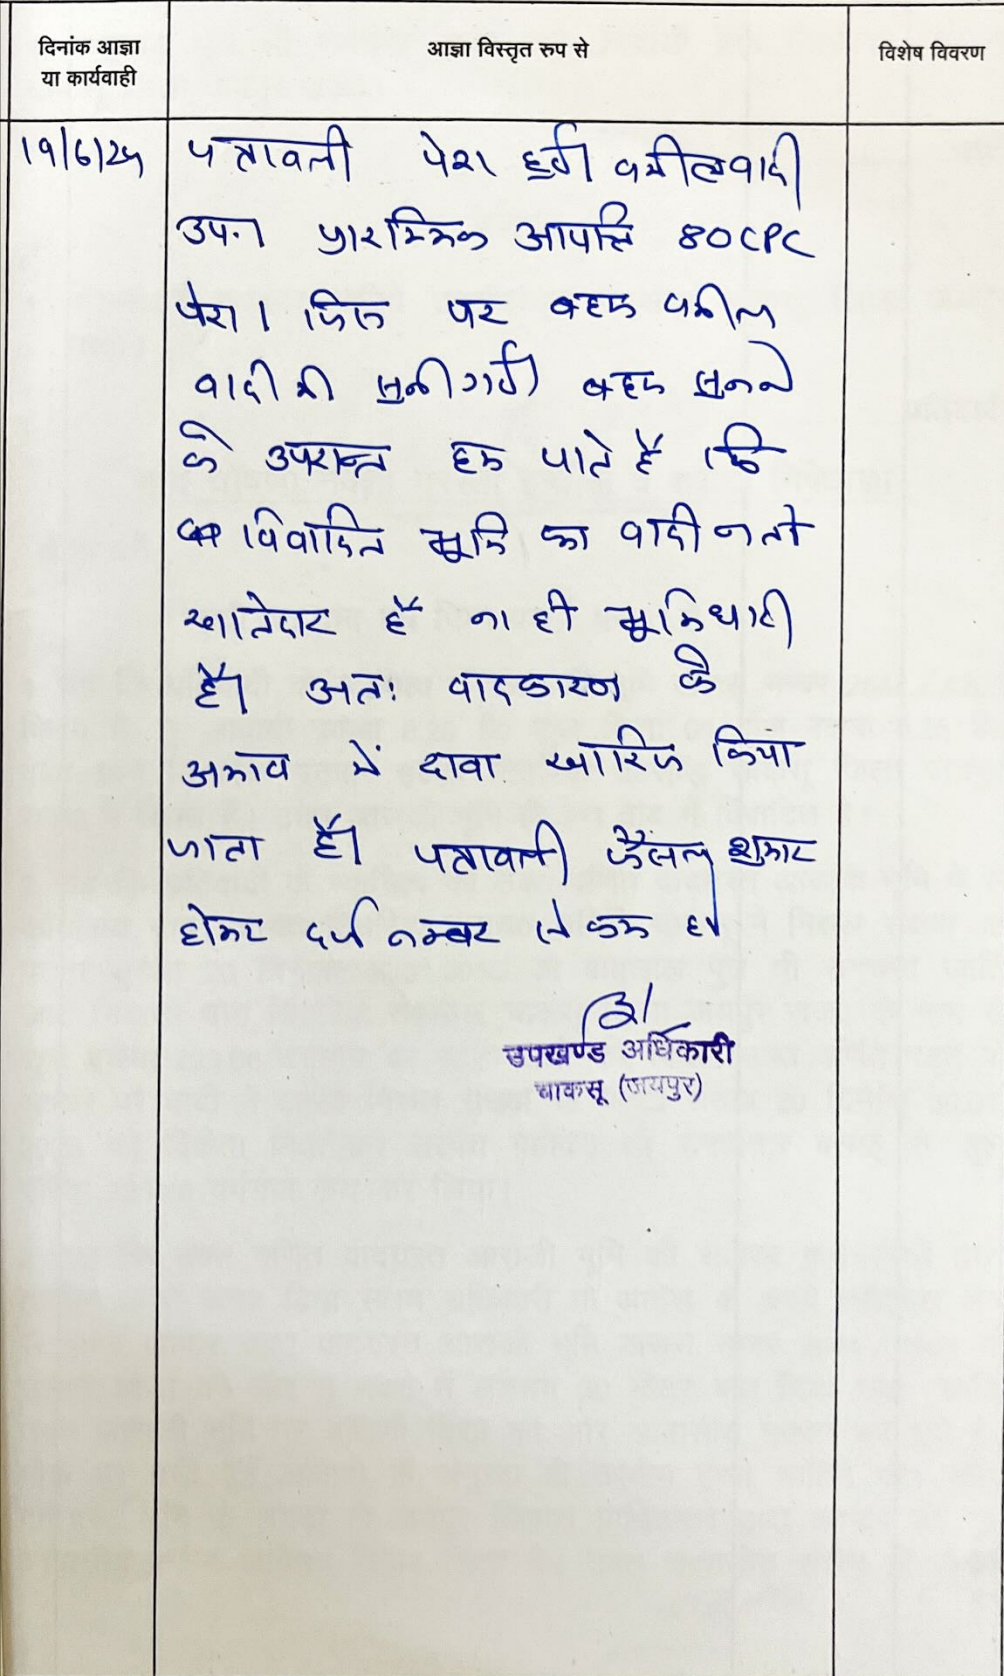 दिनांक आज्ञा
या कार्यवाही
आज्ञा विस्तृत रुप से
विशेष विवरण
19/6/25
पत्रावली पेश हुई। वकील वादी
उप.। प्रारम्भिक आपत्ति 80CPC
पेश। जिस पर बहस वकील
वादी की सुनी गई। बहस सुनने
के उपरान्त हम पाते है कि
विवादित भूमि का वादी न तो
खातेदार है ना ही भूमिधारी
है। अतः वादकारण के
अभाव में दावा खारिज किया
जाता है। पत्रावली फैसल शुमार
होकर दर्ज नम्बर से कम हो
उपखण्ड अधिकारी
चाकसू (जयपुर)